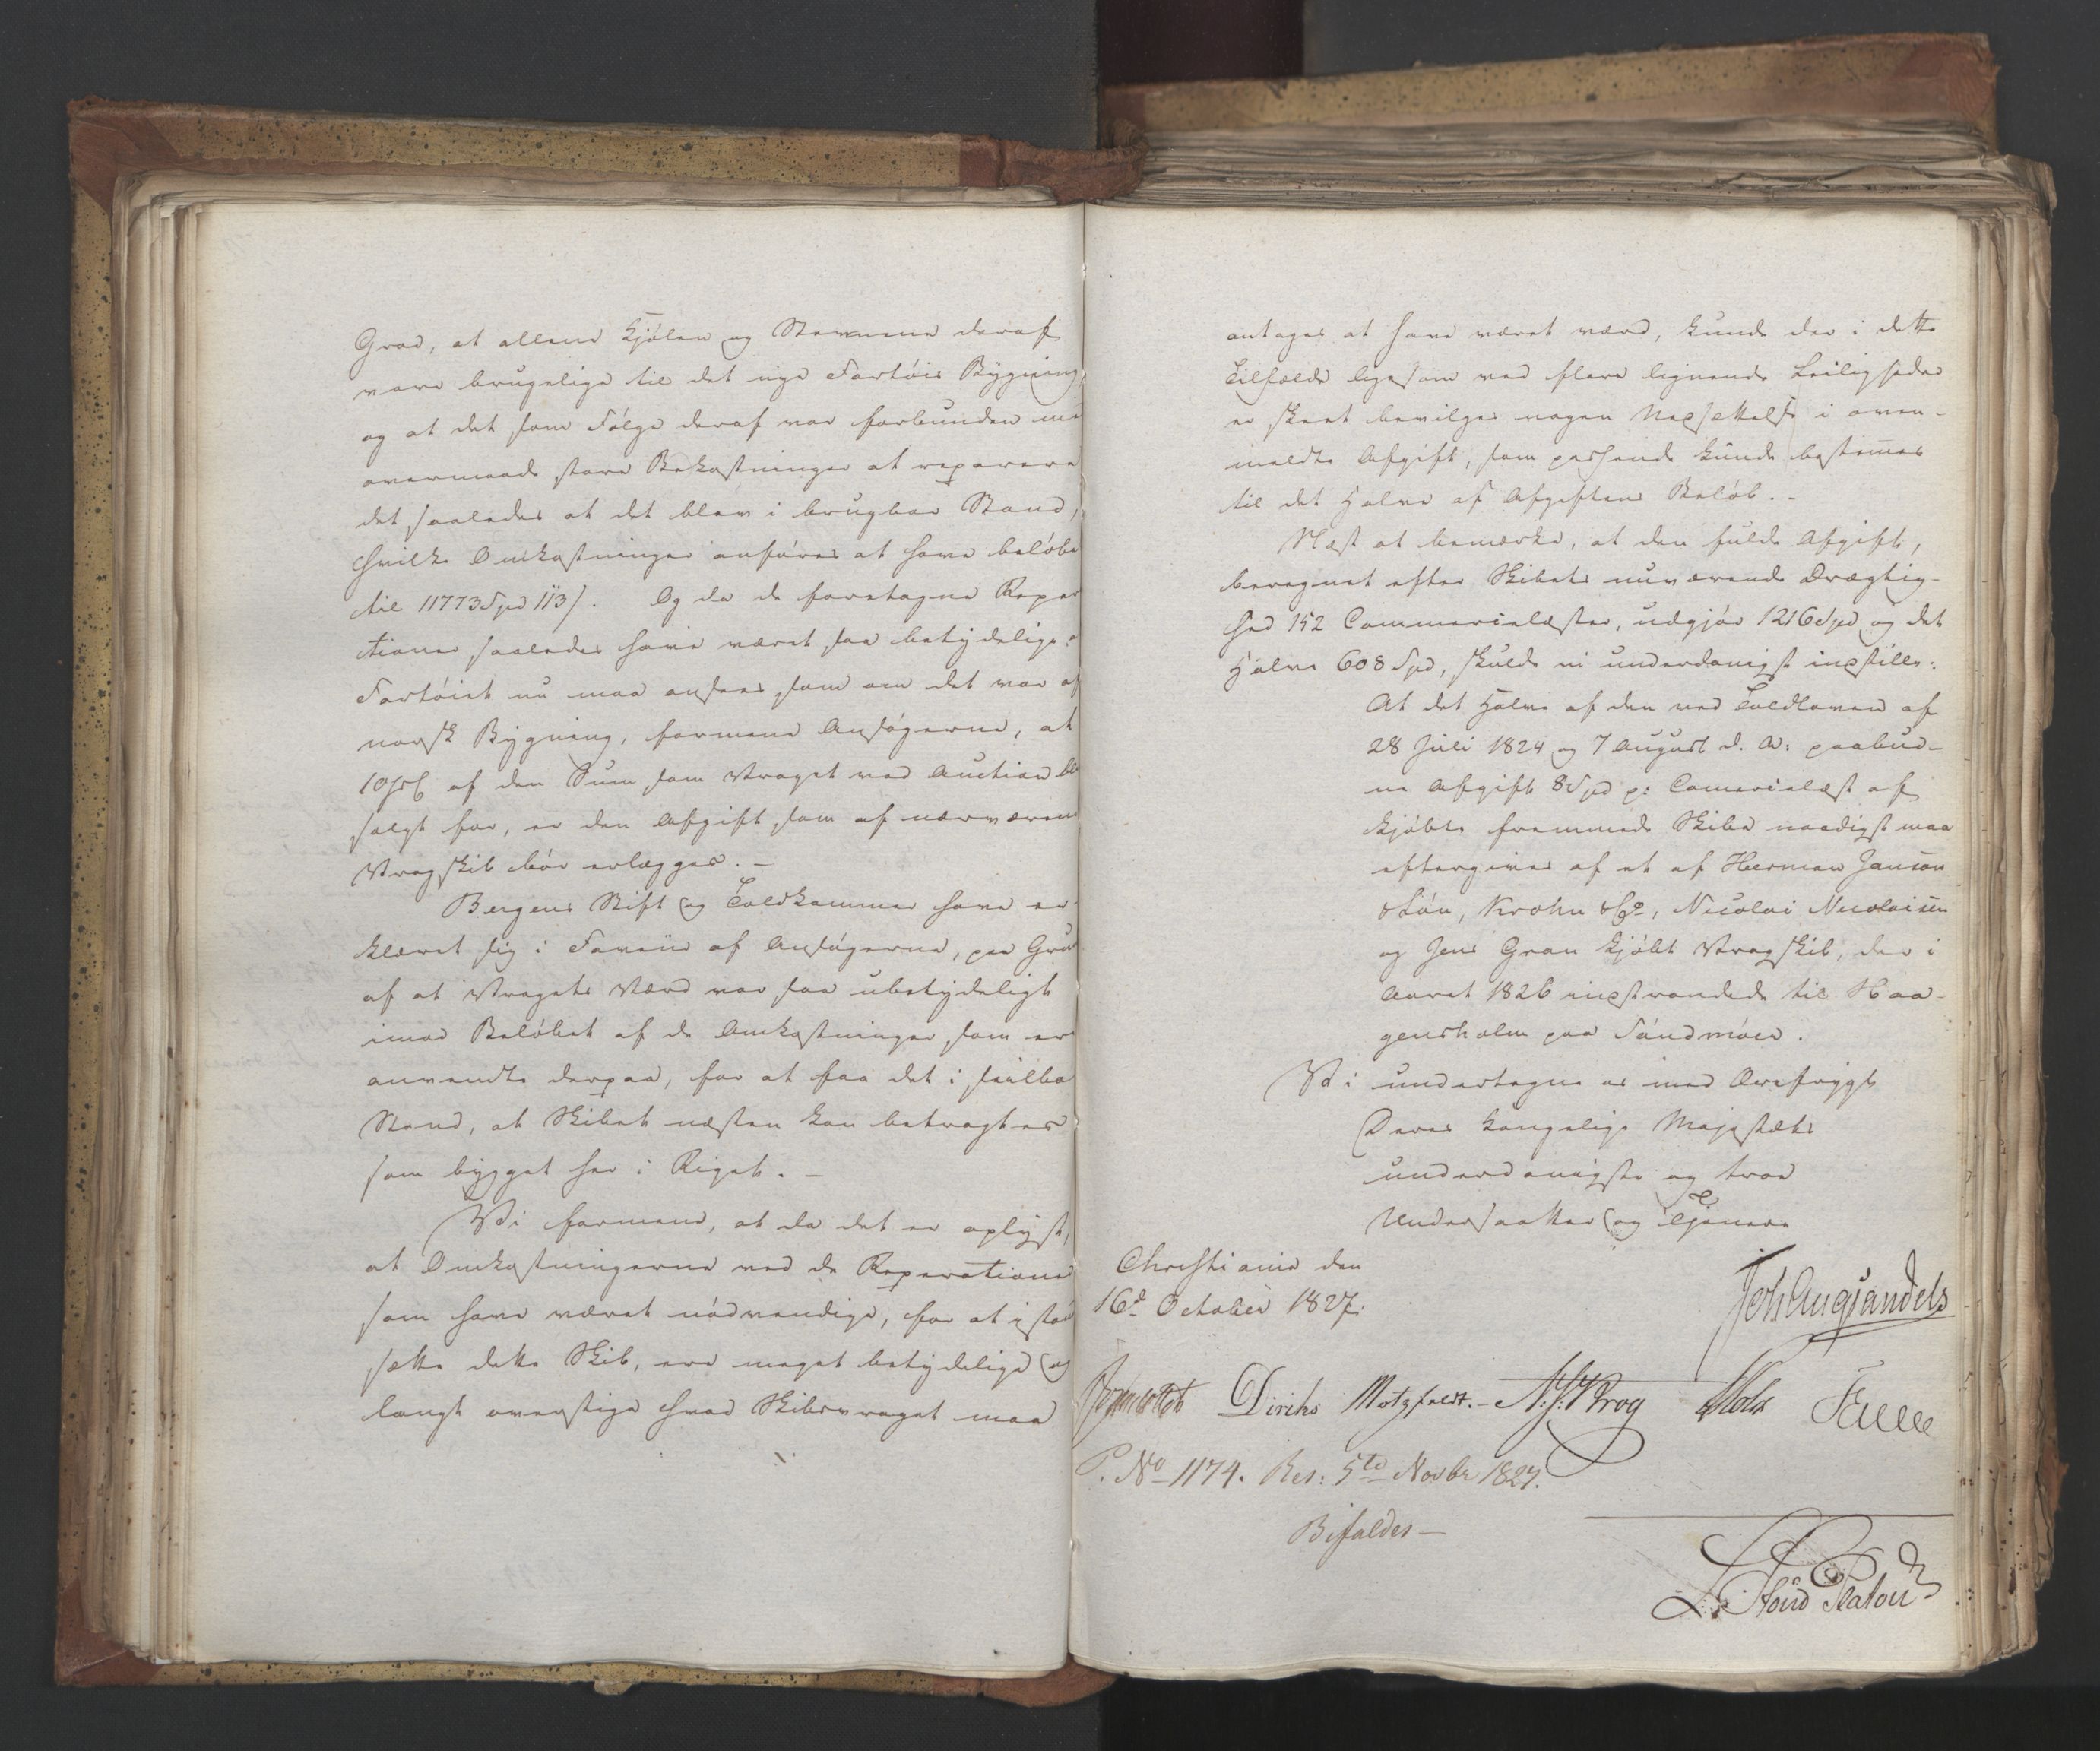 Grad, at allene Kjølen og Stevnene deraf
vare brugelige til det nye Fartøis Bygning,
og at det som Følge deraf var forbunden med
overmaade store Bekostninger at reparere
det saaledes at det blev i brugbar Stand,
hvilke Omkostninger anføres at have beløbe
til 11773 Spd 113 s. Og da de foretagne Repar
tioner saaledes have været saa betydelige, a
Fartøiet nu maa ansees som om det var af
norsk Bygning, formene Ansøgerne, at
10 prC af den Sum som Vraget ved Auction bl
solgt for, er den Afgift som af nærværen
Vragskib bør erlægges. -
Bergens Stift og Toldkammer have er-
klæret sig i Faveur af Ansøgerne, paa Grun
af at Vragets Værd var saa ubetydeligt
imod Beløbet af de Omkostninger, som er
anvendte derpaa, for at faa det i seilba
Stand, at Skibet næsten kan betragtes
som bygget her i Riget. -
Vi formene, at da det er oplyst,
at Omkostningerne ved de Reparationer
som have været nødvendige, for at istand
sætte dette Skib, ere meget betydelige og
langt overstige hvad Skibsvraget maa
antages at have været værd, kunde der i dette
Tilfælde ligesom ved flere lignende Leiligheder
er skeet bevilges nogen Nedsættelse i oven-
meldte Afgift, som passende kunde bestemes
til det Halve af Afgiftens Beløb. -
Næst at bemærke, at den fulde Afgift,
beregnet efter Skibets nuværende Drægtig-
hed 152 Commercelæster, udgjør 1216 Spd og det
Halve 608 Spd, skulde vi underdanigst indstille:
At det Halve af den ved Toldloven af
28 Juli 1824 og 7 August d. A: paabud-
ne Afgift 8 Spd pr: Comercelæst af
kjøbte fremmede Skibe naadigst maa
eftergives af et af Herman Janson
& Søn, Krohn & Co, Nicolai Nicolaisen
og Jens Gran kjøbt Vragskib, der i
Aaret 1826 indstrandede til Haa-
gensholm paa Søndmøer.
Vi undertegne os med Ærefrygt
Deres Kongelige Majestæts
underdanigste og troe
Undersaatter og Tjenere
Christiania den
16d October 1827.
Joh Aug Sandels
Diriks Motzfeldt. - N: J: Krog Holst Fasting
P. No 1174. Res: 5te Novbr 1827.
Bifaldes -